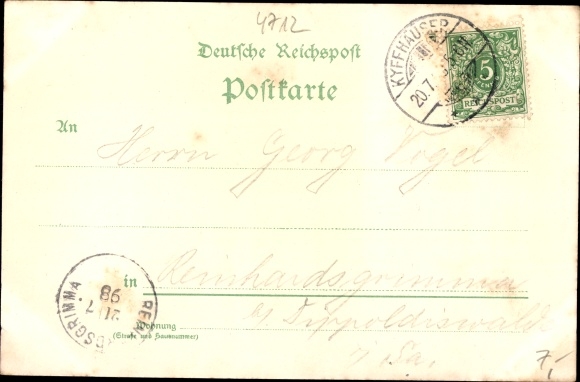 4712
Deutsche Reichspost
Postkarte
KYFFHÄUSER
20.7.
5
REICHSPOST
An
Herrn Georg Vogel
in Reinhardsgrimma
b/ Dippoldiswalde
i/ Sa.
Wohnung
(Straße und Hausnummer)
98
7,-